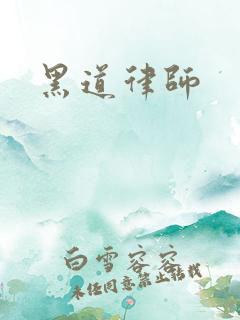 黑道律師
白雪容容
未经同意禁止转载